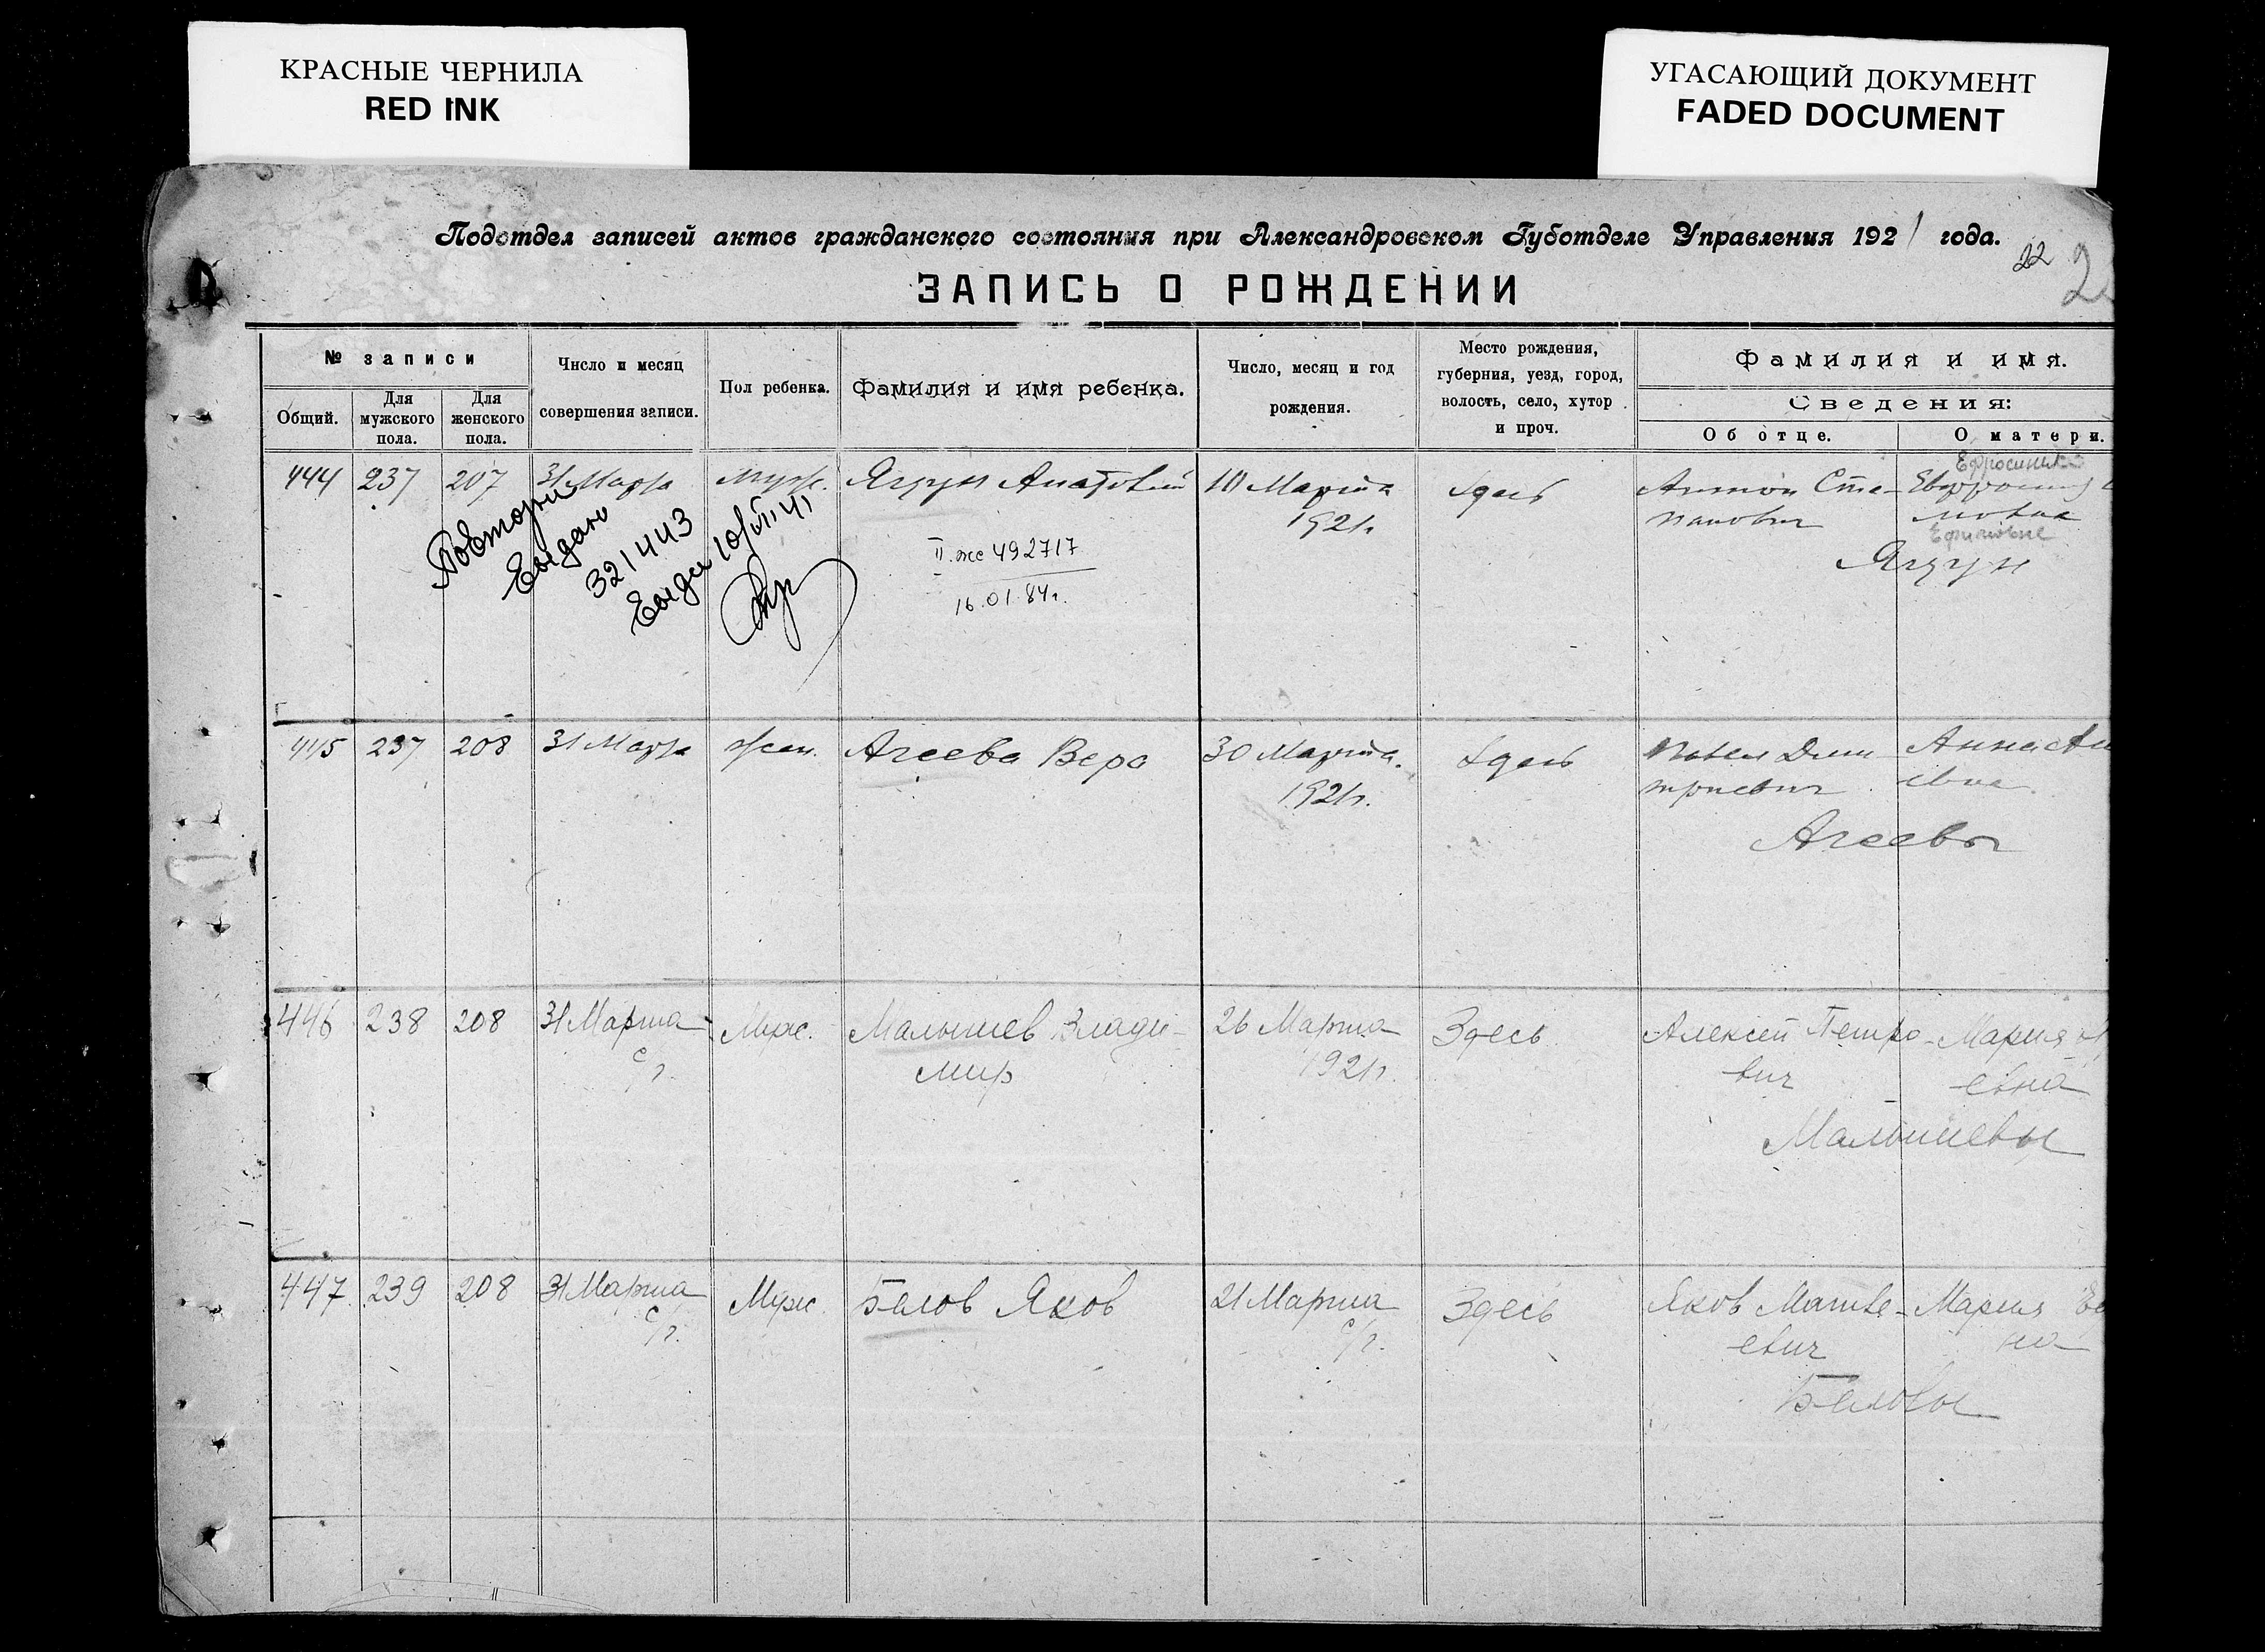 КРАСНЫЕ ЧЕРНИЛА
RED INK
УГАСАЮЩИЙ ДОКУМЕНТ
FADED DOCUMENT
Подотдел записей актов гражданского состояния при Александровском Губотделе Управления 1921 года.
22
2
ЗАПИСЬ О РОЖДЕНИИ
№ записи
Общий.
Для мужского пола.
Для женского пола.
Число и месяц совершения записи.
Пол ребенка.
Фамилия и имя ребенка.
Число, месяц и год рождения.
Место рождения, губерния, уезд, город, волость, село, хутор и проч.
Фамилия и имя.
Сведения:
Об отце.
О матери.
444 237 207 31 Марта муж. Ягдун Анатолий 10 Марта Здесь Антон Сте-
1921г. панович
Ефросинья
Ефимовне
Ягдун
Повторн
Выдано
321443
10/VII 41
II-жс 492717
16.01.84г.
445 237 208 31 Марта жен. Агеева Вера 30 Марта Здесь Павел Дми- Анна
1921г. триевич евна
Агеевы
446 238 208 31 Марта Муж. Малышев Влади- 26 Марта Здесь Алексей Петро- Мария
с/г. мир 1921г. вич евна
Малышевы
447 239 208 31 Марта Муж. Белов Яков 21 Марта Здесь Яков Матве- Мария
с/г. с/г. евич на
Беловы